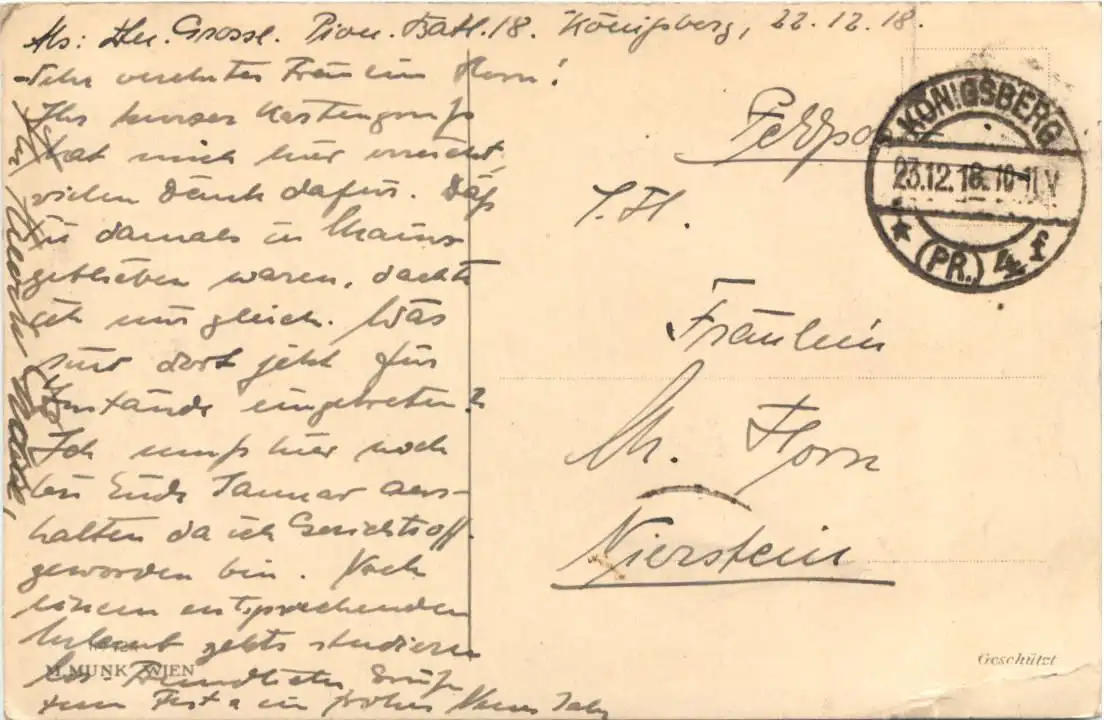 Abs: Ltn. Grossl. Pion. Batl. 18. Königsberg, 22.12.18.
Sehr verehrtes Fräulein Horn!
Ihr kurzer Kartengruß
hat mich hier erreicht,
vielen Dank dafür. Daß
Sie damals in Mainz
geblieben waren, dachte
ich mir gleich. Was
sind dort jetzt für
Zustände eingetreten?
Ich muß hier noch
bis Ende Januar aus-
halten da ich Gerichtsoff.
geworden bin. Nach
einem entsprechenden
Urlaub gehts studieren
los. Freundlichen Gruß
zum Fest u ein frohes Neues Jahr
Ihr
Feldpo
S. H.
Fräulein
M. Horn
Nierstein
KÖNIGSBERG
23.12.18.10-11V
* (PR.) 4 f
M. MUNK WIEN
Geschützt